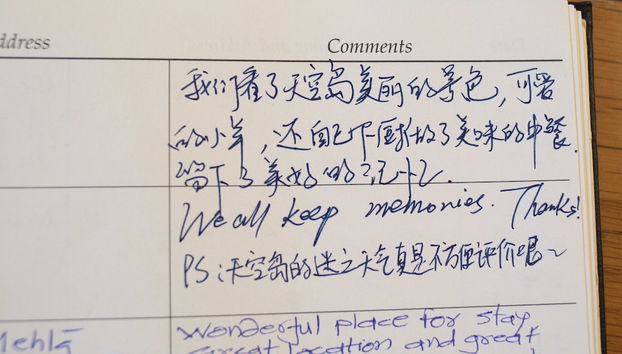 ddress Comments
我们看了天空岛美丽的景色，可爱
的小羊，还自己下厨做了美味的中餐.
留下了美好的记忆.
We all keep memories. Thanks!
PS：天空岛的迷之天气真是不方便评价呢～
Mehta Wonderful place for stay
great location and great